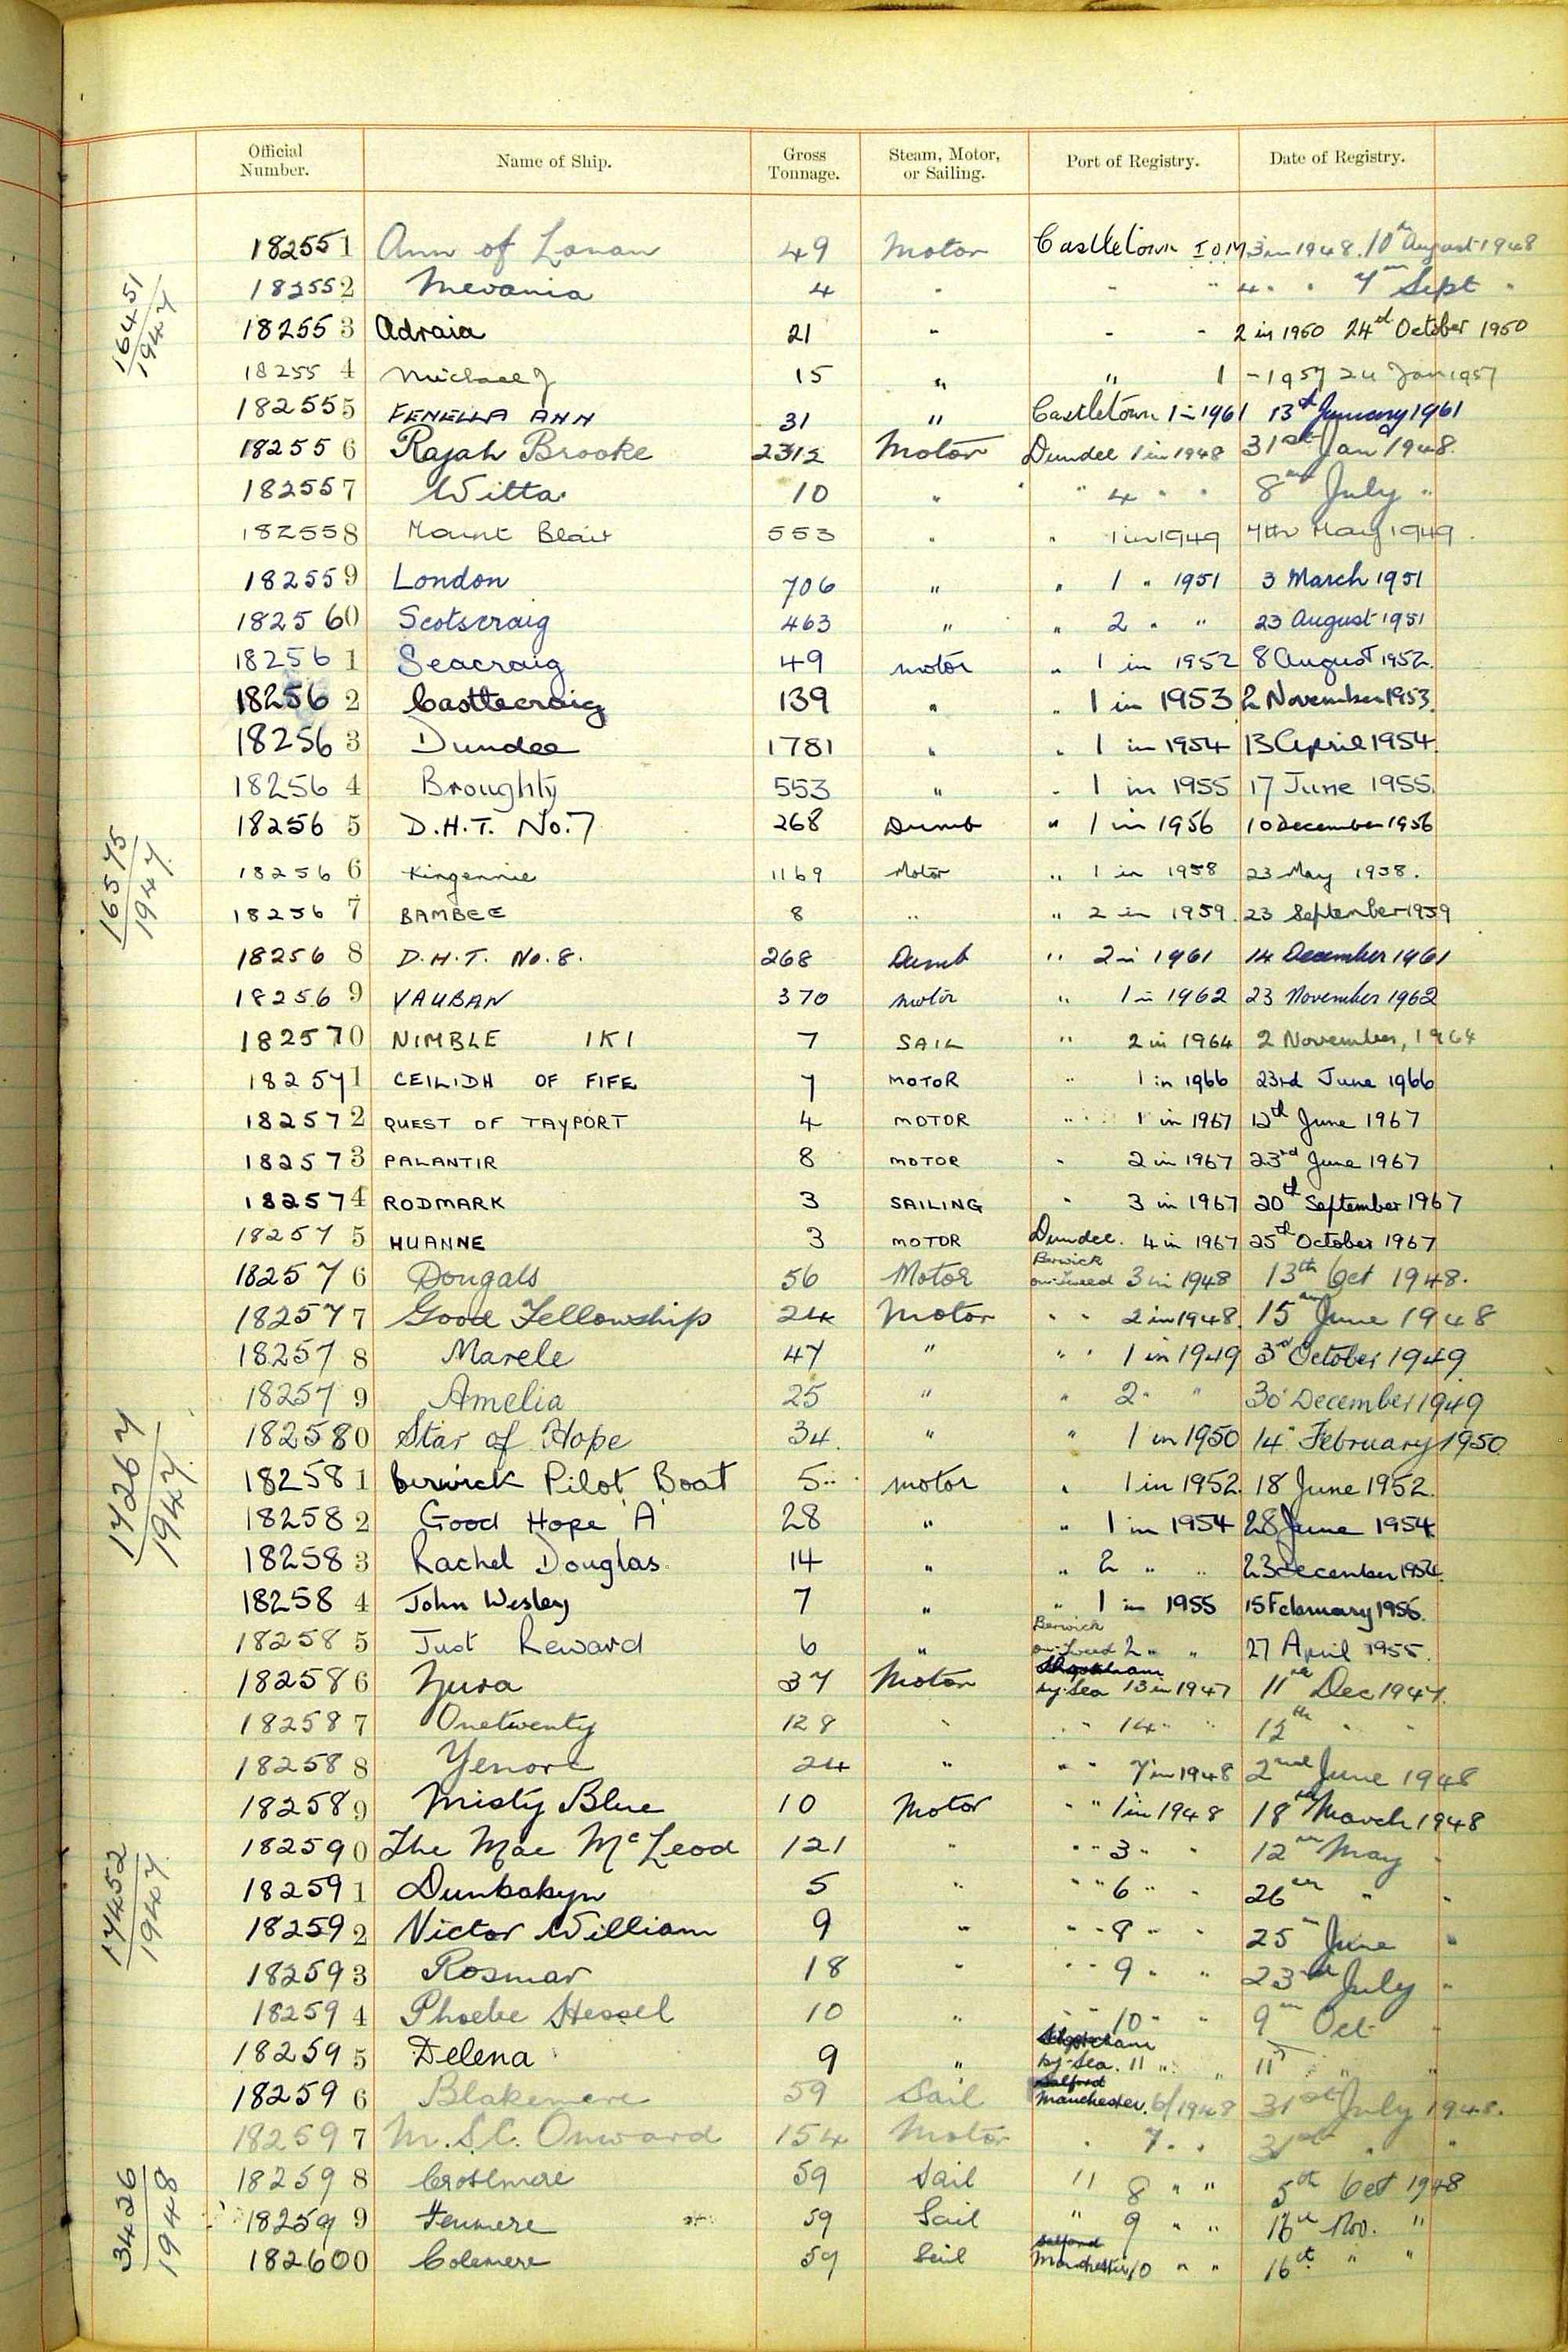 Official Number. Name of Ship. Gross Tonnage. Steam, Motor, or Sailing. Port of Registry. Date of Registry.
182551 Ann of Lonan 49 Motor Castletown I.O.M. 3 in 1948. 10th August 1948
16451/1947
182552 Mevania 4 " " " 4 " " 7th Sept "
182553 Adraia 21 " " " 2 in 1950 24th October 1950
182554 Michael J 15 " " 1 - 1957 24 Jan 1957
182555 FENELLA ANN 31 " Castletown 1 in 1961 13th January 1961
182556 Rajah Brooke 2312 Motor Dundee 1 in 1948 31st Jan 1948.
182557 Witta 10 " " 4 " " 8th July "
182558 Mount Blair 553 " " 1 in 1949 7th May 1949.
182559 London 706 " " 1 " 1951 3 March 1951
182560 Scotscraig 463 " " 2 " " 23 August 1951
182561 Seacraig 49 motor " 1 in 1952 8 August 1952.
182562 Castlecraig 139 " " 1 in 1953 2 November 1953.
182563 Dundee 1781 " " 1 in 1954 13 April 1954.
182564 Broughty 553 " " 1 in 1955 17 June 1955.
182565 D.H.T. No. 7 268 Dumb " 1 in 1956 10 December 1956
16575/1947.
182566 Kingennie 1169 Motor " 1 in 1958 23 May 1958.
182567 BAMBEE 8 " " 2 in 1959. 23 September 1959
182568 D.H.T. No. 8. 268 Dumb " 2 in 1961 14 December 1961
182569 VAUBAN 370 motor " 1 in 1962 23 November 1962
182570 NIMBLE IKI 7 SAIL " 2 in 1964 2 November, 1964
182571 CEILIDH OF FIFE 7 MOTOR " 1 in 1966 23rd June 1966
182572 QUEST OF TAYPORT 4 MOTOR " 1 in 1967 12th June 1967
182573 PALANTIR 8 MOTOR " 2 in 1967 23rd June 1967
182574 RODMARK 3 SAILING " 3 in 1967 20th September 1967
182575 HUANNE 3 MOTOR Dundee. 4 in 1967 25th October 1967
182576 Dougals 56 Motor Berwick on-Tweed 3 in 1948 13th Oct 1948.
182577 Good Fellowship 24 Motor " " 2 in 1948. 15th June 1948
182578 Marele 47 " " " 1 in 1949 3rd October 1949
182579 Amelia 25 " " 2 " " 30 December 1949
182580 Star of Hope 34. " " 1 in 1950 14 February 1950
17267/1947.
182581 Berwick Pilot Boat 5 motor " 1 in 1952. 18 June 1952.
182582 Good Hope A 28 " " 1 in 1954 28 June 1954
182583 Rachel Douglas 14 " " 2 " " 23 December 1954.
182584 John Wesley 7 " " 1 in 1955 15 February 1955.
182585 Just Reward 6 " Berwick on-Tweed 2 " " 27 April 1955.
182586 37 Motor Shoreham by-Sea 13 in 1947 11th Dec 1947.
182587 Onetwenty 128 " " " 14 " " 12th " "
182588 Yenore 24 " " " 7 in 1948 2nd June 1948
182589 Misty Blue 10 Motor " " 1 in 1948 18th March 1948
182590 The Mac McLeod 121 " " " 3 " " 12th May "
17452/1947.
182591 5 " " " 6 " " 26th " "
182592 Victor William 9 " " " 8 " " 25th June "
182593 Rosmar 18 " " " 9 " " 23rd July "
182594 Phoebe Hessel 10 " " " 10 " " 9th Oct "
182595 Delena 9 " Shoreham by-Sea. 11 " " 11th " "
182596 Blakemere 59 Sail Salford Manchester. 6/1948 31st July 1948.
182597 M.S.C. Onward 154 Motor " 7 " " 31st " "
182598 Crosemere 59 Sail " 8 " " 5th Oct 1948
3426/1948
182599 Fenmere 59 Sail " 9 " " 16th Nov. "
182600 Colemere 59 Sail Salford Manchester 10 " " 16th " "